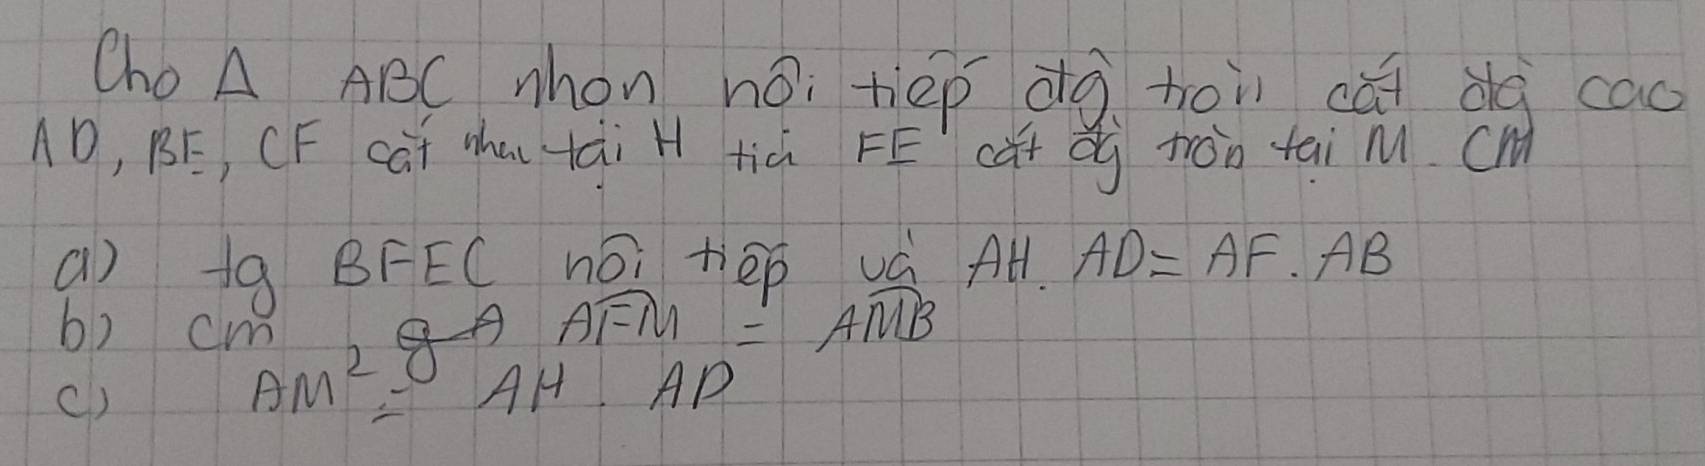 Cho Δ ABC nhọn nội tiếp đg tròn cát đg cao
AD, BE, CF cắt nhau tại H tia FE cắt đg tròn tại M. CM
a) tg BFEC nội tiếp và AH. AD = AF. AB
b) cm AFM = AMB
c) AM² = AH. AD